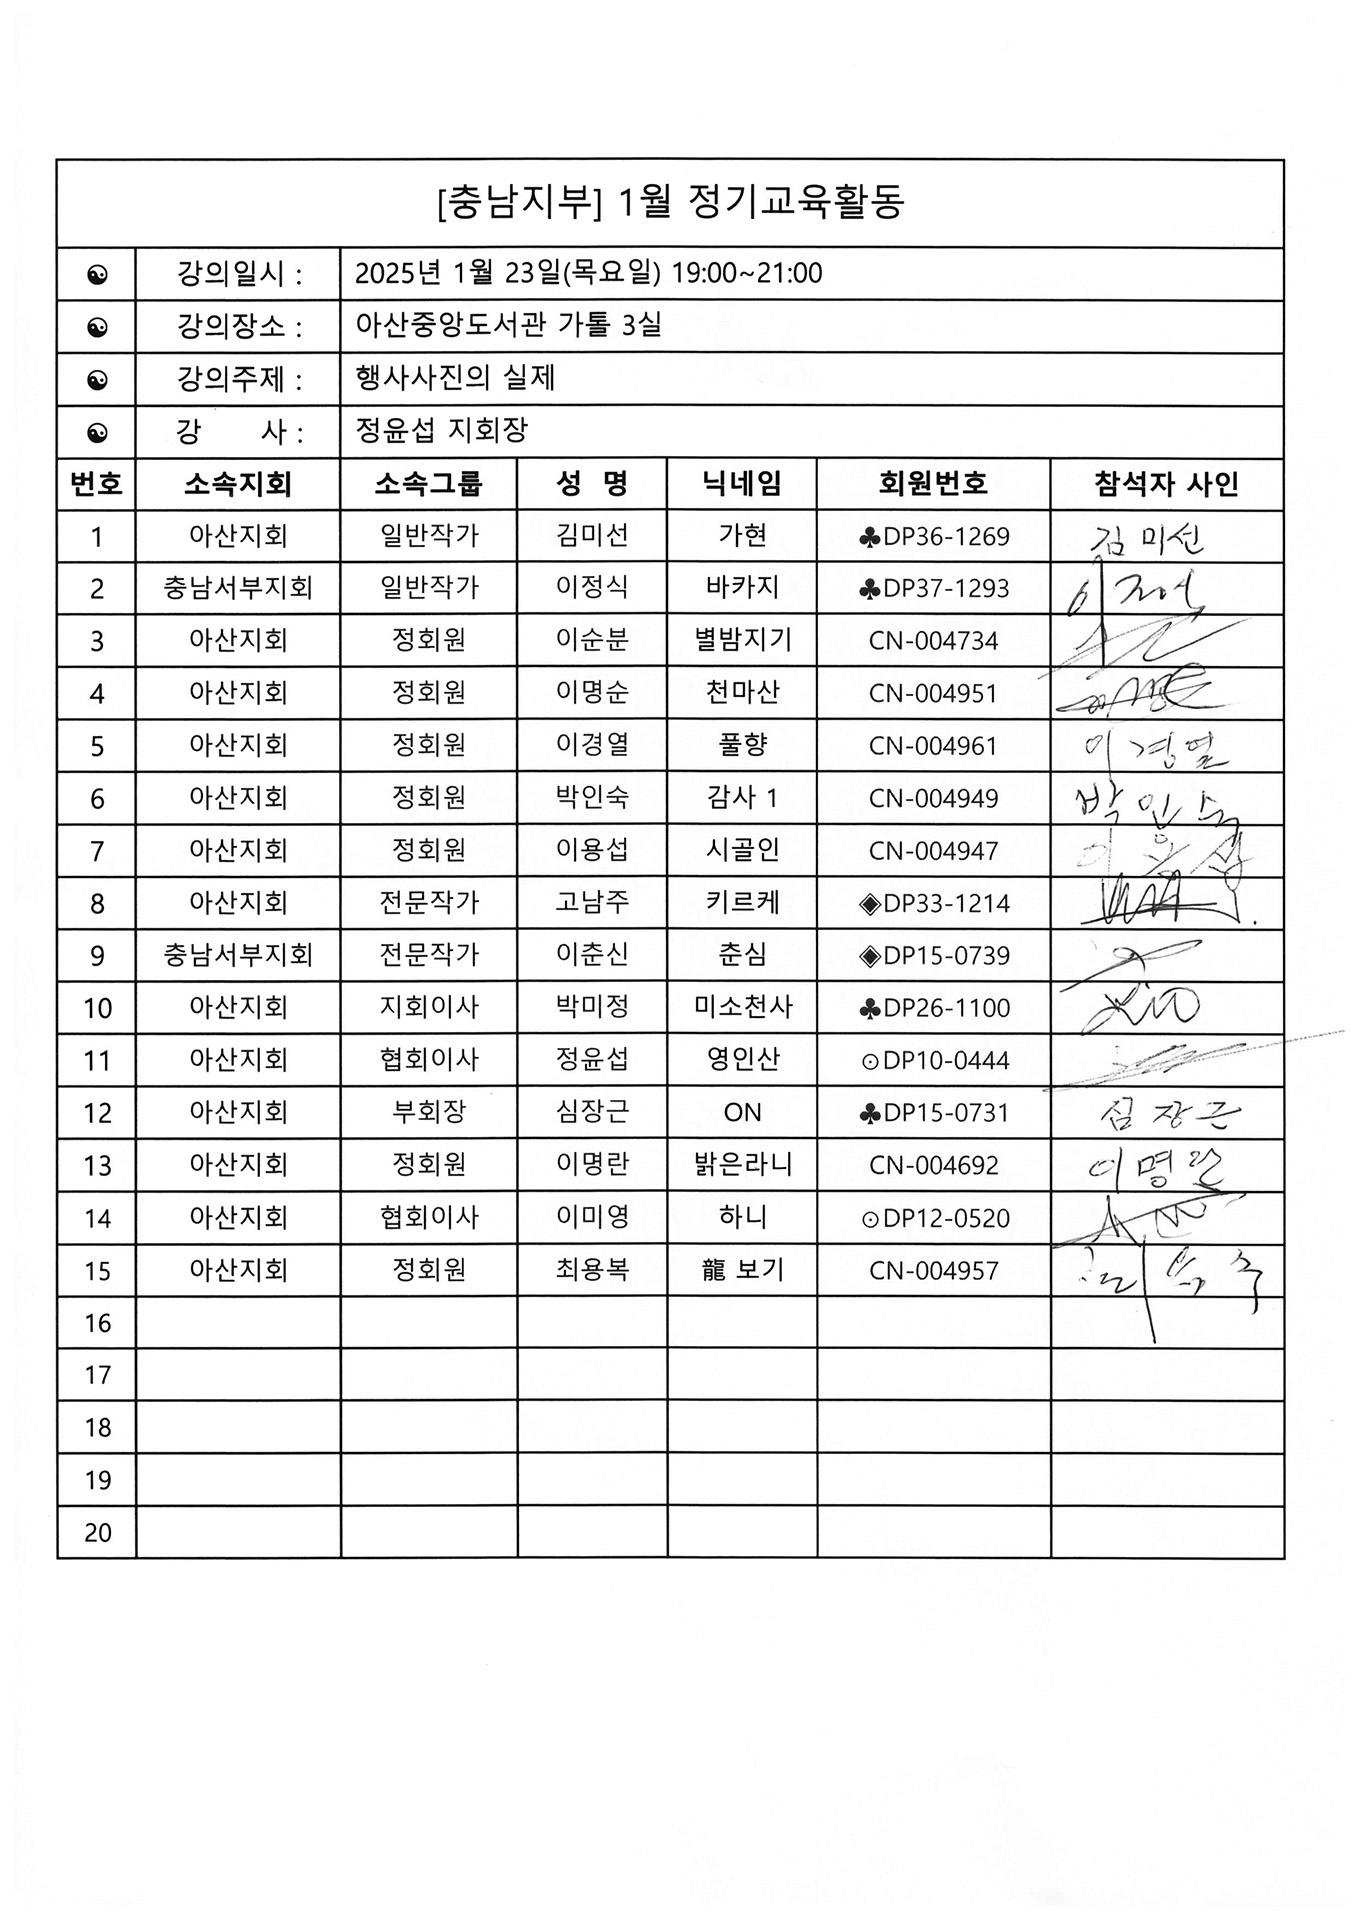 [충남지부] 1월 정기교육활동
☯ 강의일시 : 2025년 1월 23일(목요일) 19:00~21:00
☯ 강의장소 : 아산중앙도서관 가톨 3실
☯ 강의주제 : 행사사진의 실제
☯ 강 사 : 정윤섭 지회장
번호 소속지회 소속그룹 성 명 닉네임 회원번호 참석자 사인
1 아산지회 일반작가 김미선 가현 ♣DP36-1269 김미선
2 충남서부지회 일반작가 이정식 바카지 ♣DP37-1293
3 아산지회 정회원 이순분 별밤지기 CN-004734
4 아산지회 정회원 이명순 천마산 CN-004951
5 아산지회 정회원 이경열 풀향 CN-004961 이경열
6 아산지회 정회원 박인숙 감사 1 CN-004949 박인숙
7 아산지회 정회원 이용섭 시골인 CN-004947 이용섭
8 아산지회 전문작가 고남주 키르케 ◈DP33-1214
9 충남서부지회 전문작가 이춘신 춘심 ◈DP15-0739
10 아산지회 지회이사 박미정 미소천사 ♣DP26-1100
11 아산지회 협회이사 정윤섭 영인산 ⊙DP10-0444
12 아산지회 부회장 심장근 ON ♣DP15-0731 심장근
13 아산지회 정회원 이명란 밝은라니 CN-004692 이명란
14 아산지회 협회이사 이미영 하니 ⊙DP12-0520
15 아산지회 정회원 최용복 龍 보기 CN-004957
16
17
18
19
20